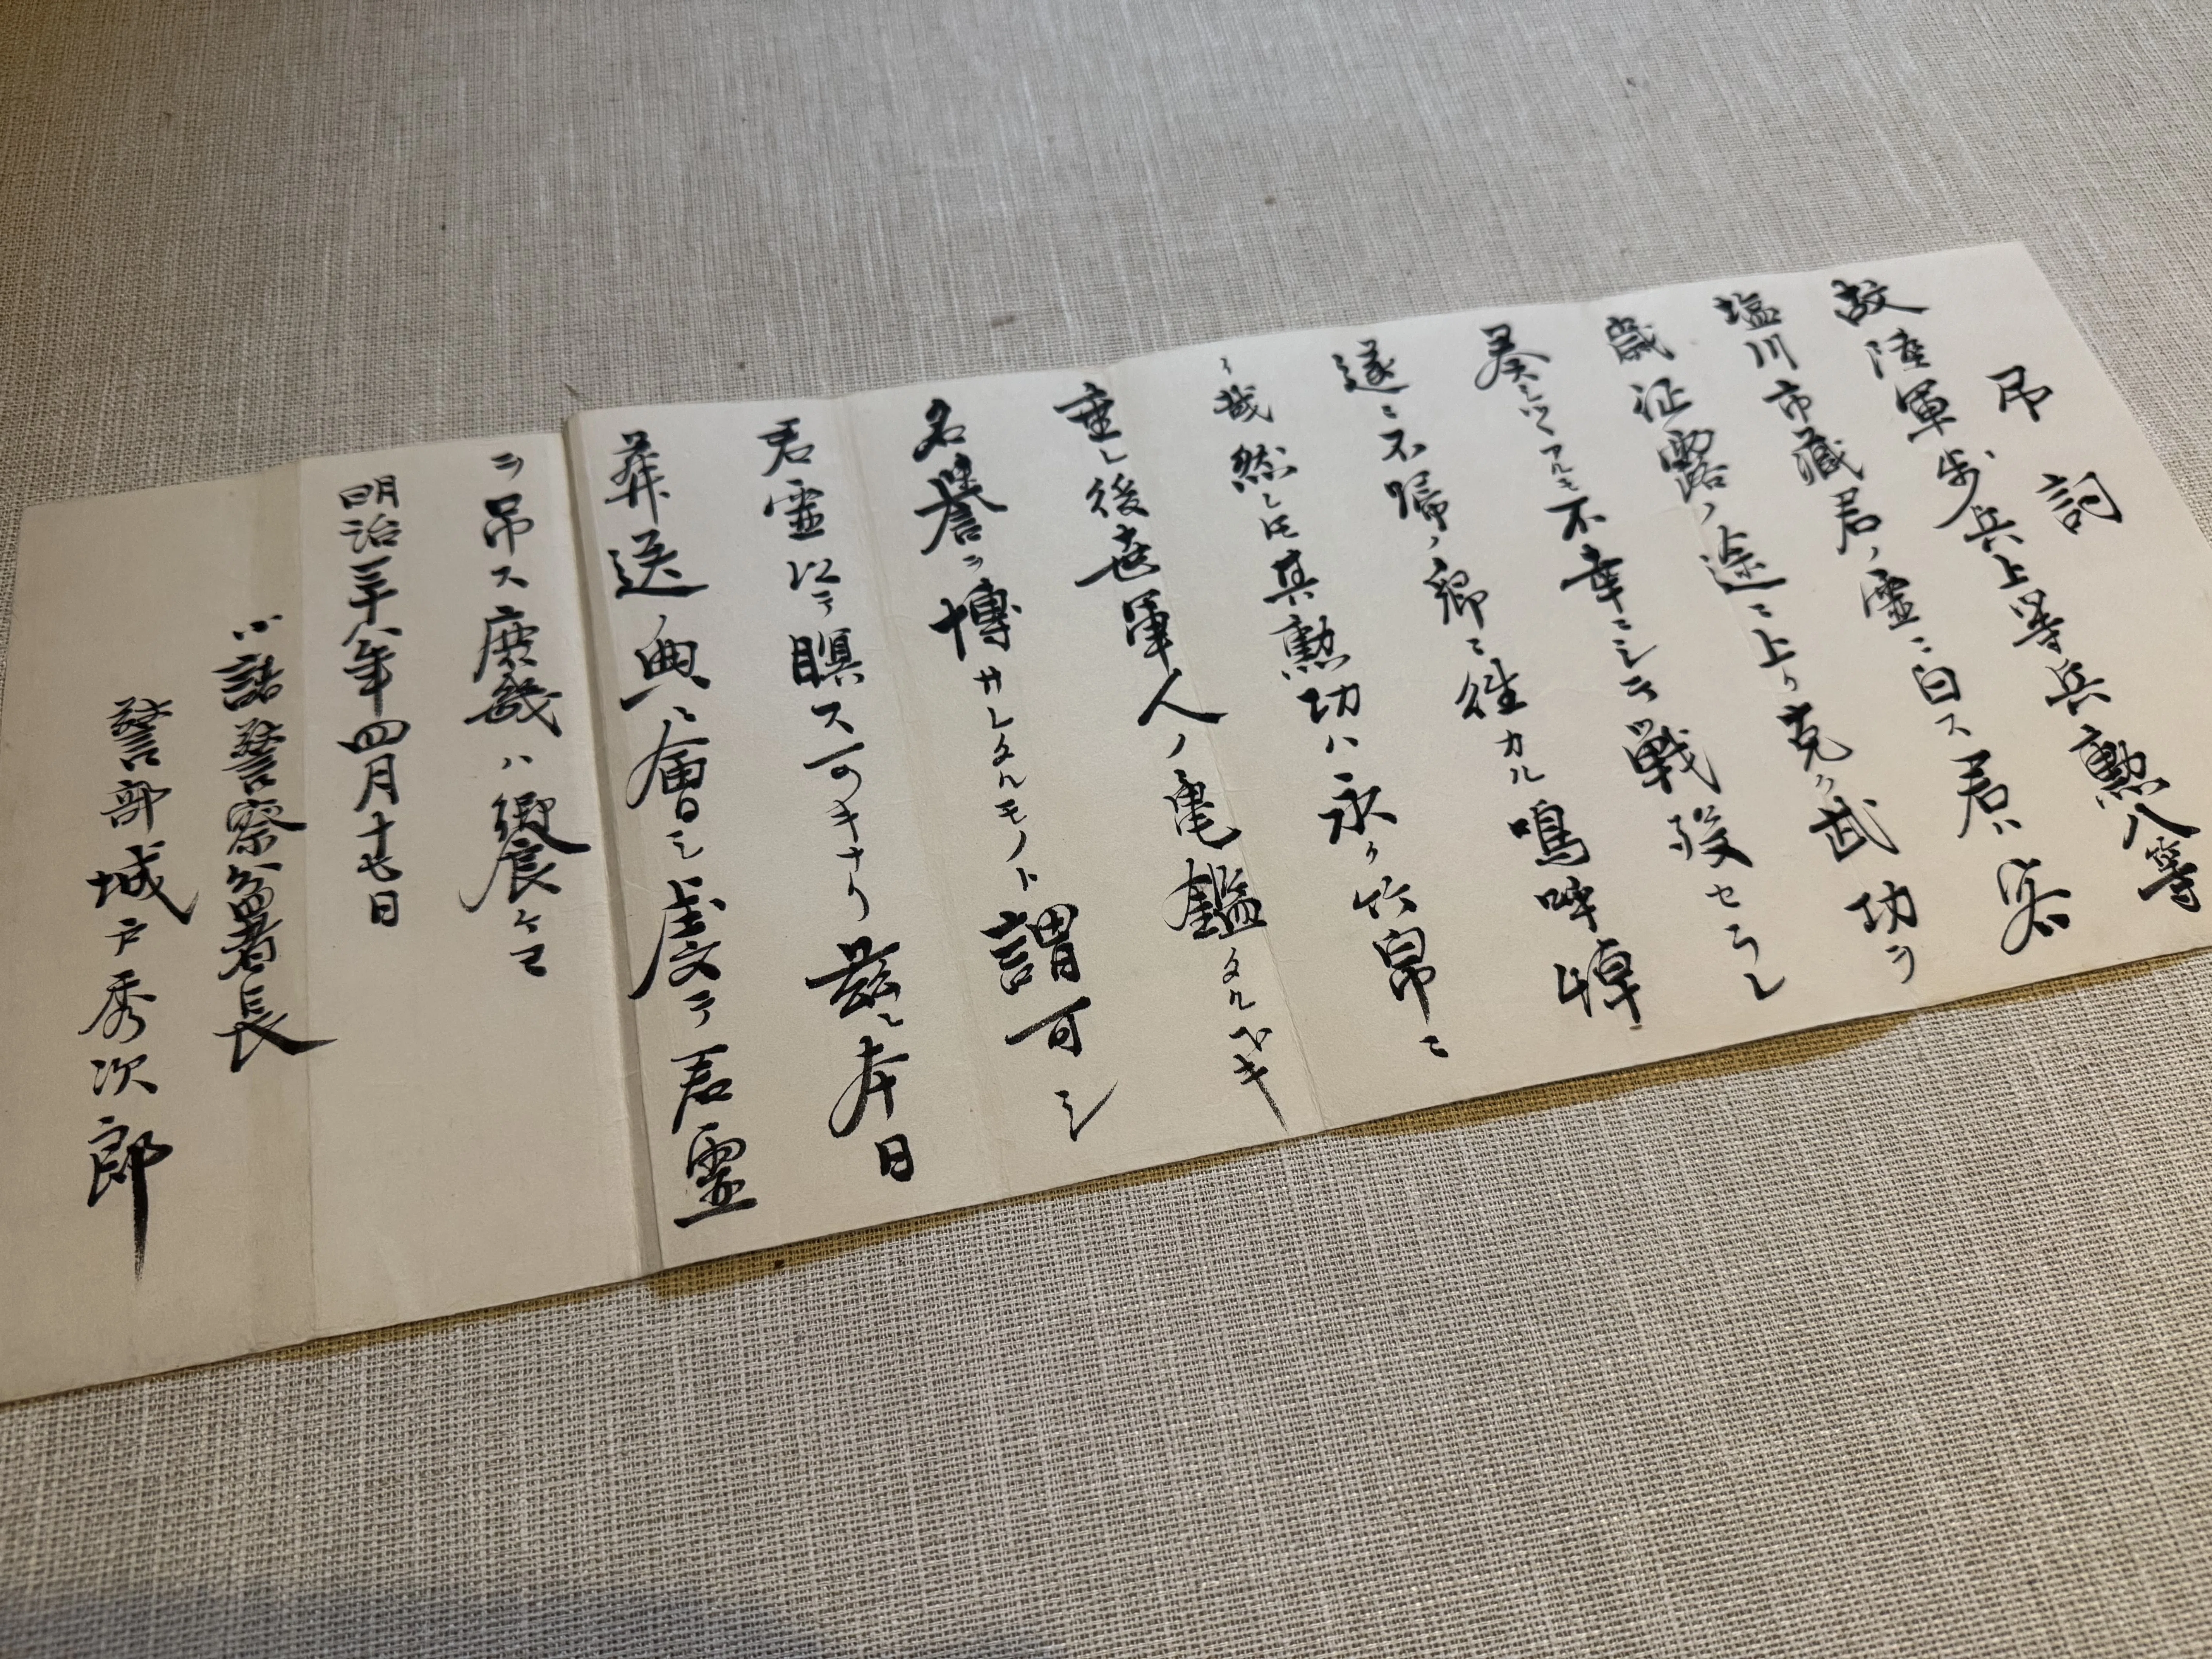 吊詞
故陸軍歩兵上等兵勲八等
塩川市蔵君ノ霊ニ白ス君ハ客
歳征露ノ途ニ上リ克ク武功ヲ
奏シツヽアルモ不幸ニシテ戦歿セラレ
遂ニ不帰ノ郷ニ往カル鳴呼悼
哉然レ𪜈其勲功ハ永ク竹帛ニ
垂レ後世軍人ノ亀鑑タルベキ
名誉ヲ博サレタルモノト謂可シ
君霊以テ瞑ス可キナリ茲ニ本日
葬送ノ典ニ会シ虔テ君霊
ヲ吊ス庶幾ハ饗ケヨ
明治三十八年四月十七日
小諸警察分署長
警部城戸秀次郎